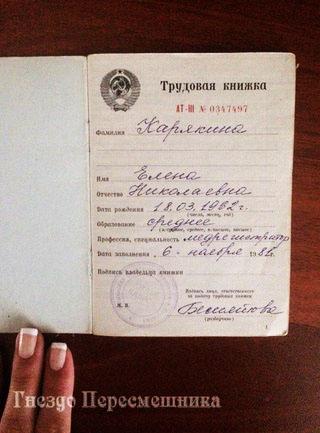 Трудовая книжка
АТ-III № 0347497
Фамилия Карякина
Имя Елена
Отчество Николаевна
Дата рождения 18.03.1962 г.
(число, месяц, год)
Образование среднее
Профессия, специальность медрегистратор
Дата заполнения 6 - ноября 1981 г.
Подпись владельца книжки
М. П.
Подпись лица, ответственного
за выдачу трудовых книжек
(разборчиво)
Гнездо Пересмешника